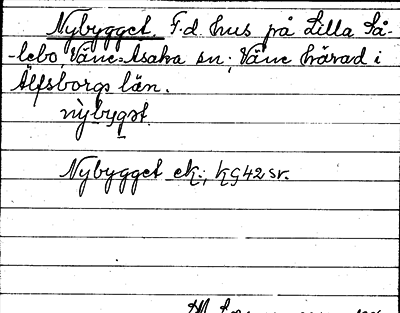 Nybygget. F.d. hus på Lilla Få-
-lebo, Väne-Åsaka sn; Väne härad i
Älfsborgs län.
nybygst.
Nybygget ek.; KG42 sr.